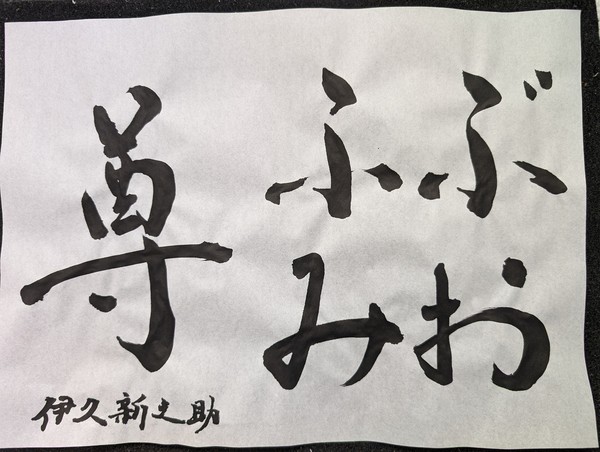 ふぶみお
尊
伊久新之助